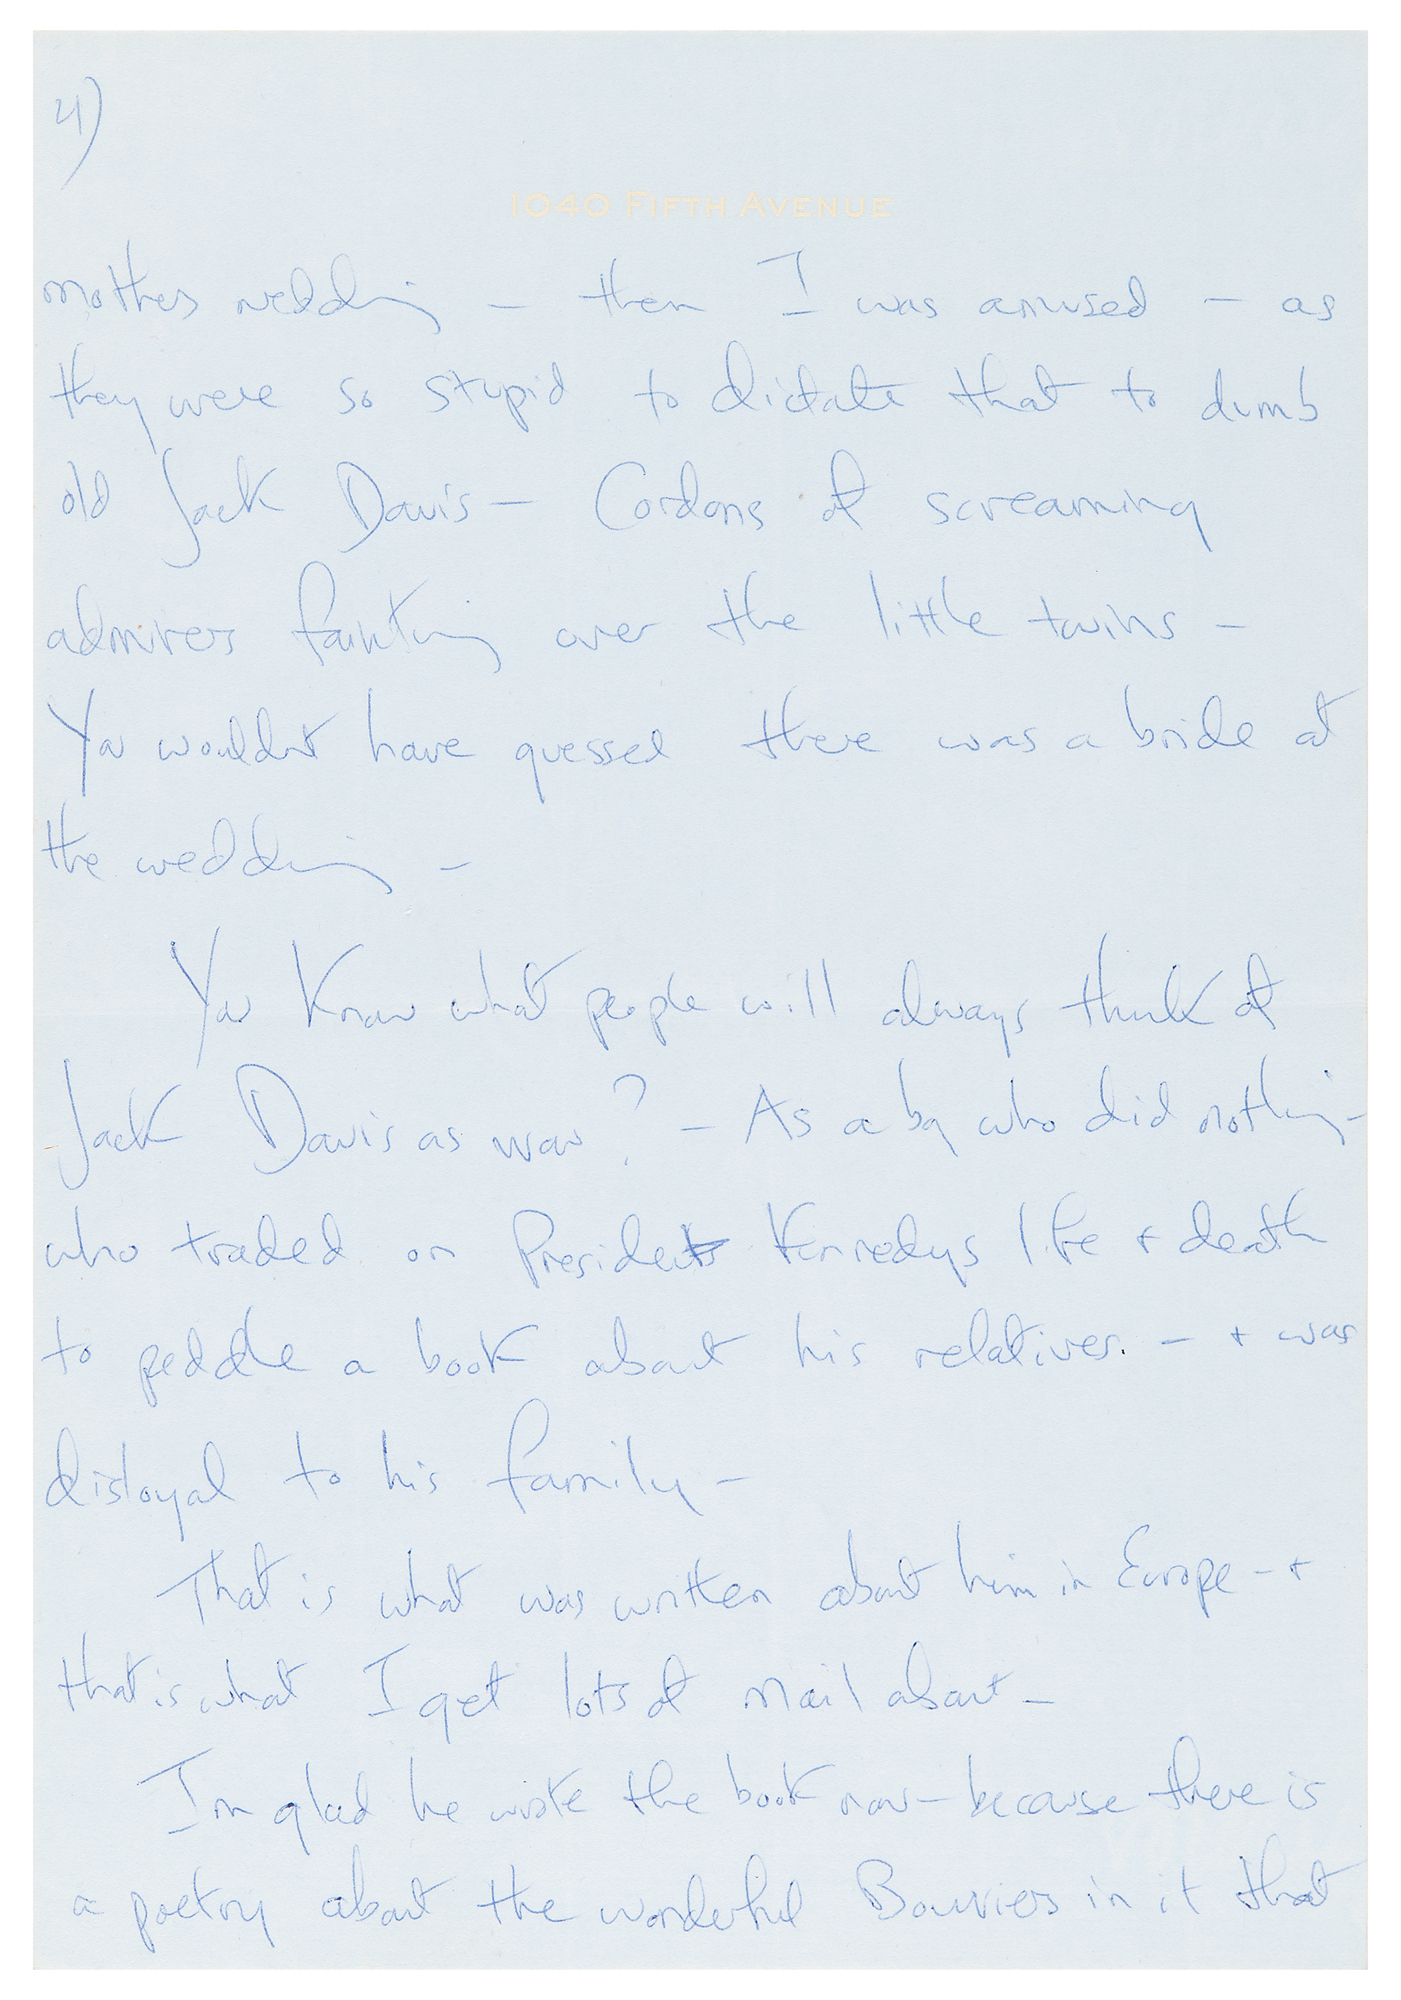 4)
1040 FIFTH AVENUE
mothers wedding – then I was amused – as
they were so stupid to dictate that to dumb
old Jack Davis – Cordons of screaming
admirers fainting over the little twins –
You wouldnt have guessed there was a bride at
the wedding –
You know what people will always think of
Jack Davis as now? – As a boy who did nothing –
who traded on President Kennedys life + death
to peddle a book about his relatives. – + was
disloyal to his family –
That is what was written about him in Europe – +
that is what I get lots of mail about –
Im glad he wrote the book now – because there is
a poetry about the wonderful Bouviers in it that